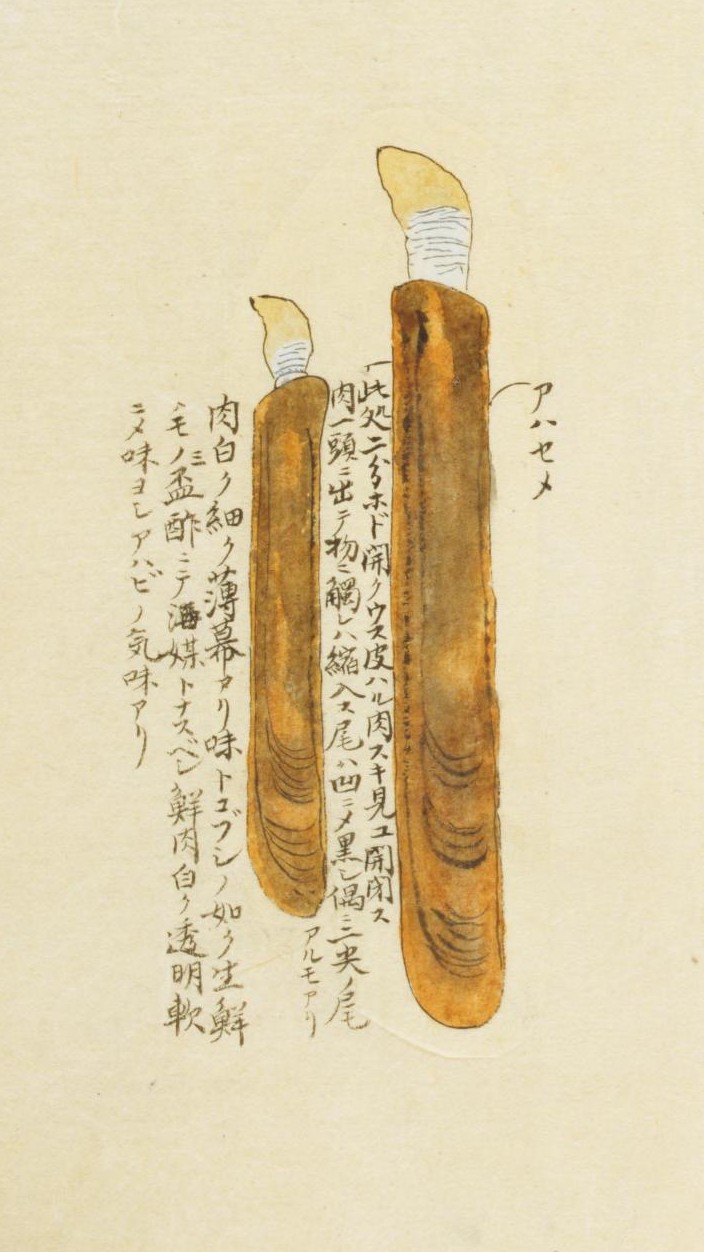 アハセメ
此処二分ホド開クウス皮ハル肉スキ見ユ開閉ス
肉一頭ニ出テ物ニ觸レハ縮入ス尾ハ凹ニメ黒シ偶ニ二央ノ尾
アルモアリ
肉白ク細ク薄幕アリ味トコブシノ如ク生鮮
ノモノ三盃酢ニテ酒媒トナスベシ鮮肉白ク透明軟
ニメ味ヨシアハビノ気味アリ